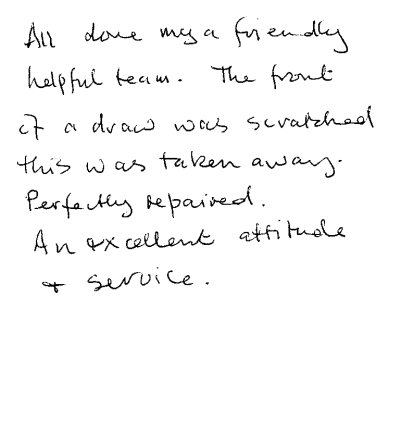 All done my a friendly
helpful team. The front
of a draw was scratched
this was taken away.
Perfectly repaired.
An excellent attitude
+ service.